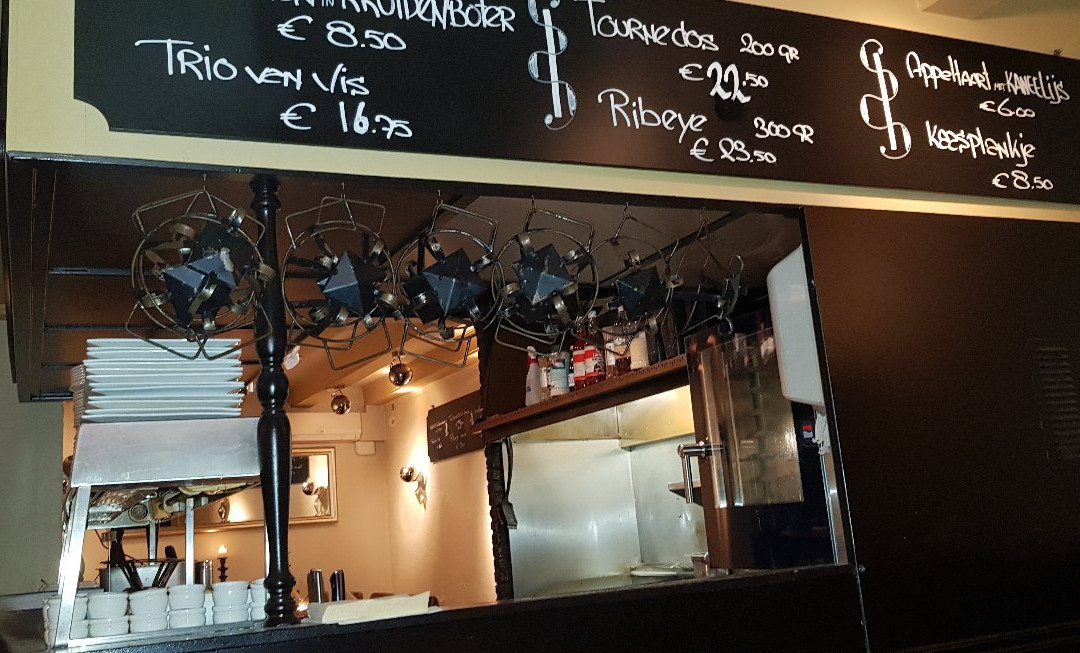 KRUIDENBOTER
€ 8.50
TRIO VAN VIS
€ 16.75
TOURNEDOS 200 GR
€ 22.50
Ribeye 300 GR
€ 23.50
AppeltAART MET KANEELIJS
€ 6.00
KAASplANKje
€ 8.50